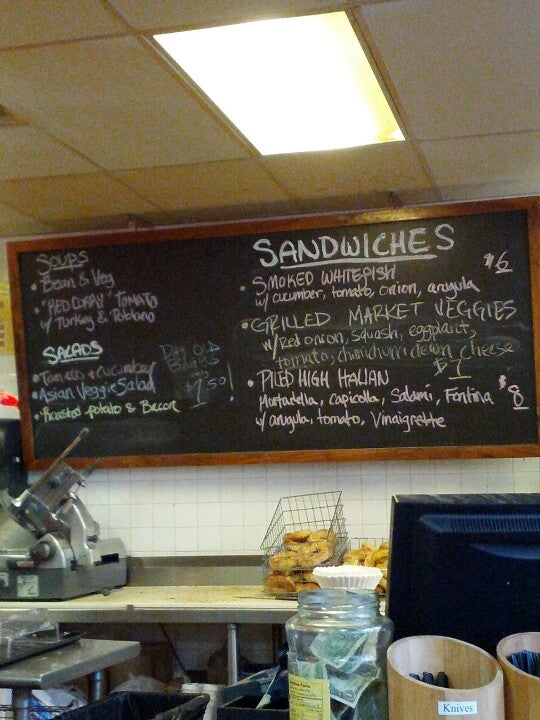 SOUPS
• Bean & Veg
• "RED CURRY" TOMATO
w/ Turkey & Poblano
SALADS
• Tomato & cucumber
• Asian Veggie Salad
• Roasted potato & Bacon
DAY OLD
$1.50!
SANDWICHES
• SMOKED WHITEFISH $6
w/ cucumber, tomato, onion, arugula
• GRILLED MARKET VEGGIES
w/ Red onion, squash, eggplant,
tomato, chimichurri cheese
$7
• PILED HIGH ITALIAN
Mortadella, capicolla, Salami, Fontina $8
w/ arugula, tomato, Vinaigrette
Knives